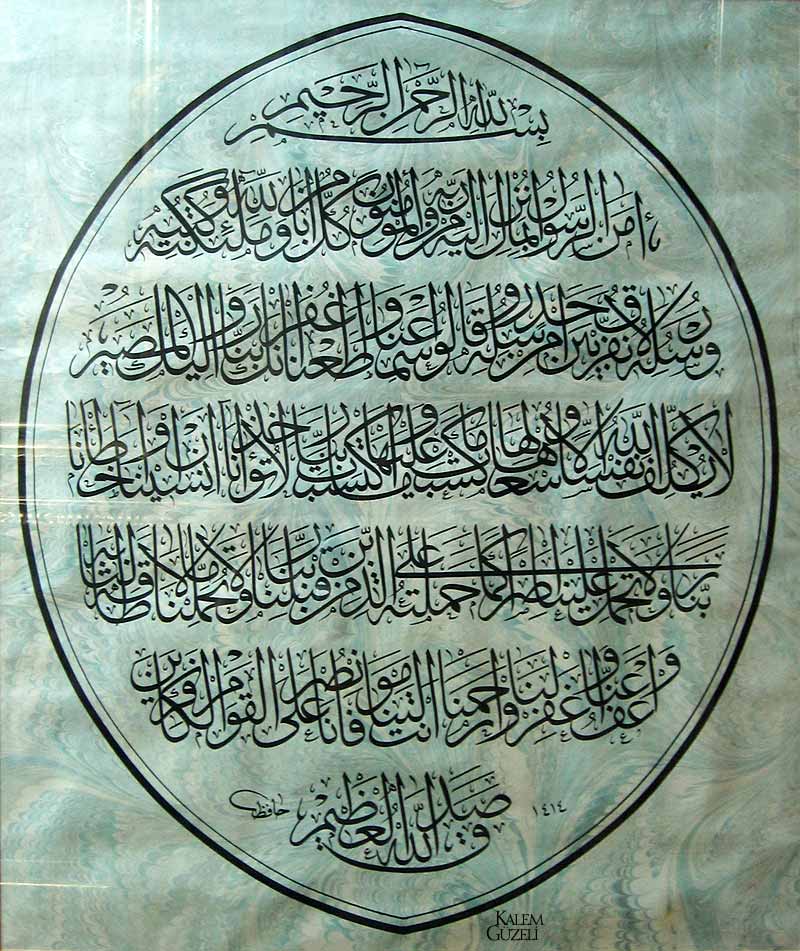 بسم الله الرحمن الرحيم
امن الرسول بما انزل اليه من ربه والمؤمنون كل امن بالله وملئكته وكتبه
ورسله لا نفرق بين احد من رسله وقالوا سمعنا واطعنا غفرانك ربنا واليك المصير
لا يكلف الله نفسا الا وسعها لها ما كسبت وعليها ما اكتسبت ربنا لا تؤاخذنا ان نسينا او اخطأنا
ربنا ولا تحمل علينا اصرا كما حملته على الذين من قبلنا ربنا ولا تحملنا ما لا طاقة لنا به
واعف عنا واغفر لنا وارحمنا انت مولنا فانصرنا على القوم الكافرين
صدق الله العظيم
حافظ ١٤١٤
KALEM
GÜZELİ